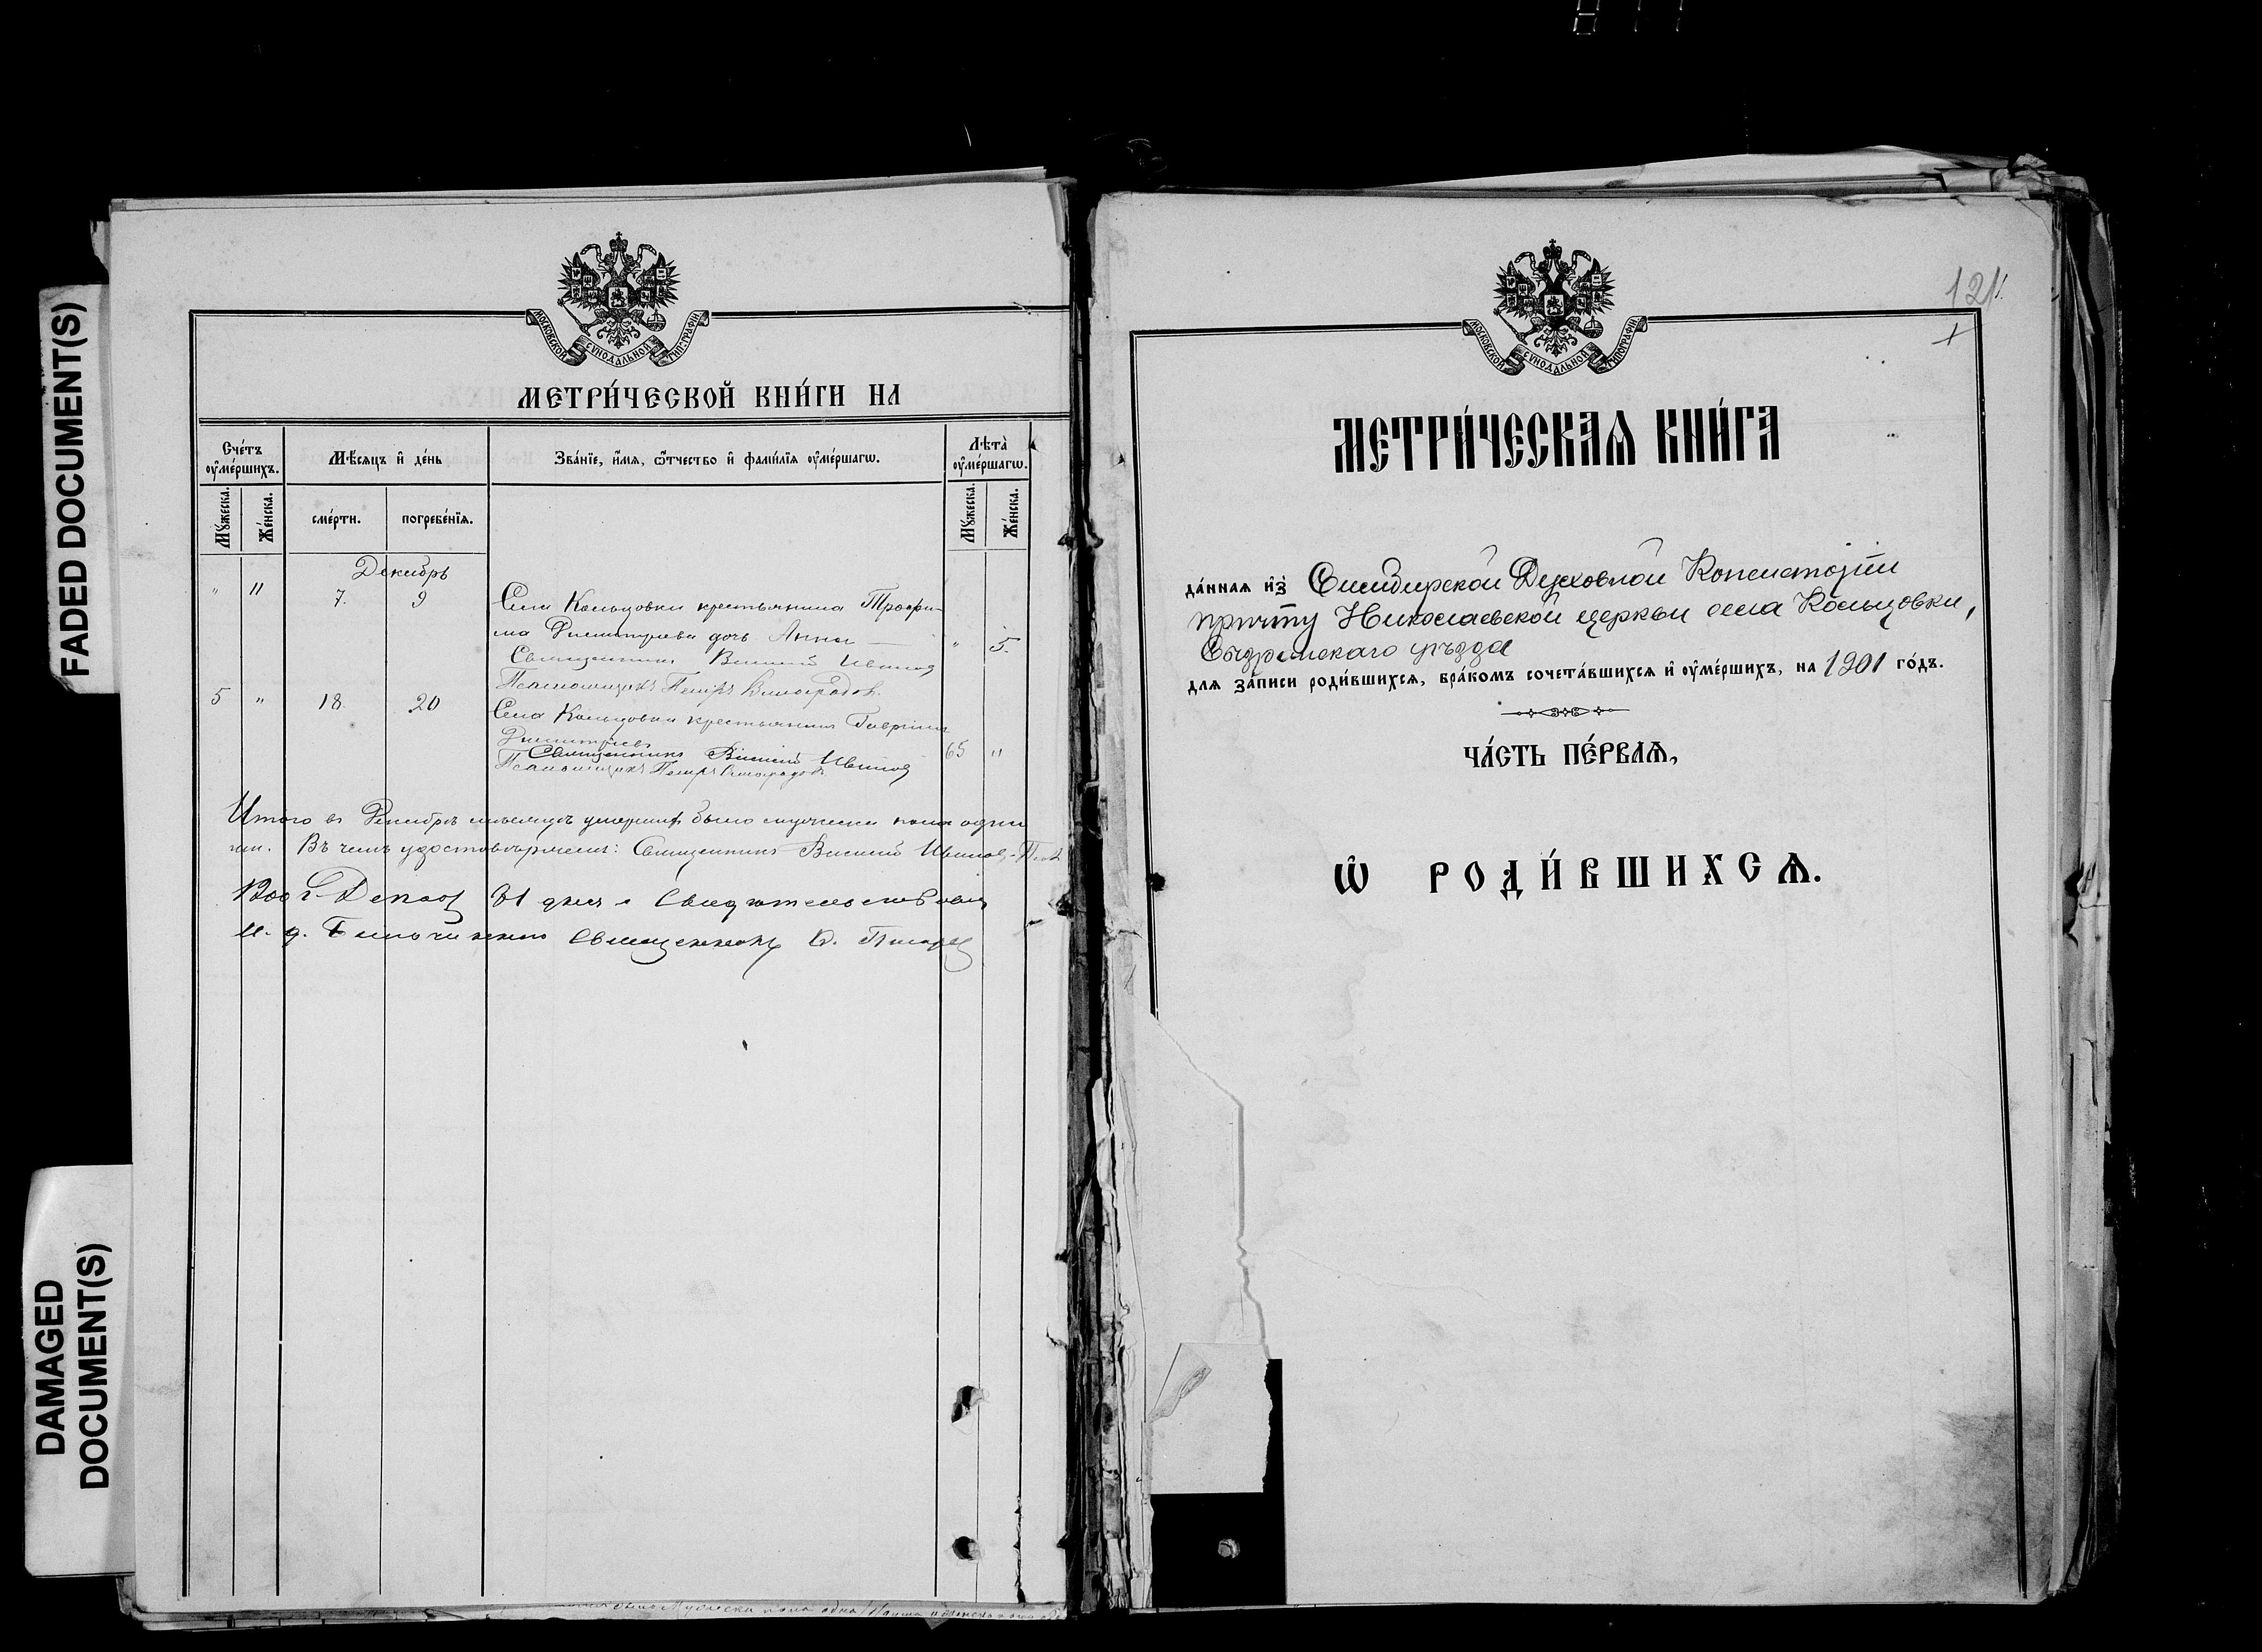 FADED DOCUMENT(S)
DAMAGED
DOCUMENT(S)
МОСКОВСКОЙ СѴНОДАЛЬНОЙ ТИПОГРАФІИ
МЕТРИ́ЧЕСКОЙ КНИ́ГИ НА
Сче́тъ оу҆ме́ршихъ.
Мѣ́сяцъ и҆ де́нь
Зва́нїе, и҆́мя, ѻ҆́тчество и҆ фами́лїя оу҆ме́ршагѡ.
Лѣта̀ оу҆ме́ршагѡ.
Мꙋ́жеска.
Же́нска.
сме́рти.
погребе́нїя.
Мꙋ́жеска.
Же́нска.
Декабрь
" 11 7. 9 Села Кольцовки крестьянина Трофи-
ма Димитриева дочь Анна " 5.
Священникъ Иванов
Псаломщикъ Петръ Виноградов.
5 " 18. 20 Села Кольцовки крестьянин Гаврiил
Димитриевъ 65 "
Священникъ Иванов
Псаломщикъ Петръ Виноградовъ
Итого въ Декабрѣ месяцѣ умерших было мужеска пола один
Въ чемъ удостовѣряемъ: Священникъ Иванов
31 дня
Священникъ
121
МОСКОВСКОЙ СѴНОДАЛЬНОЙ ТИПОГРАФІИ
МЕТРИ́ЧЕСКАѦ КНИ́ГА
да́нная и҆з̾ Симбирской Духовной Консисторіи
причту Николаевской церкви села Кольцовки,
Сызранскаго уѣзда
для за́писи роди́вшихся, бра́комъ сочета́вшихся и҆ оу҆ме́ршихъ, на 1901 го́дъ.
ЧА́СТЬ ПЕ́РВАѦ,
Ѡ҆ РОДИ́ВШИХСѦ.